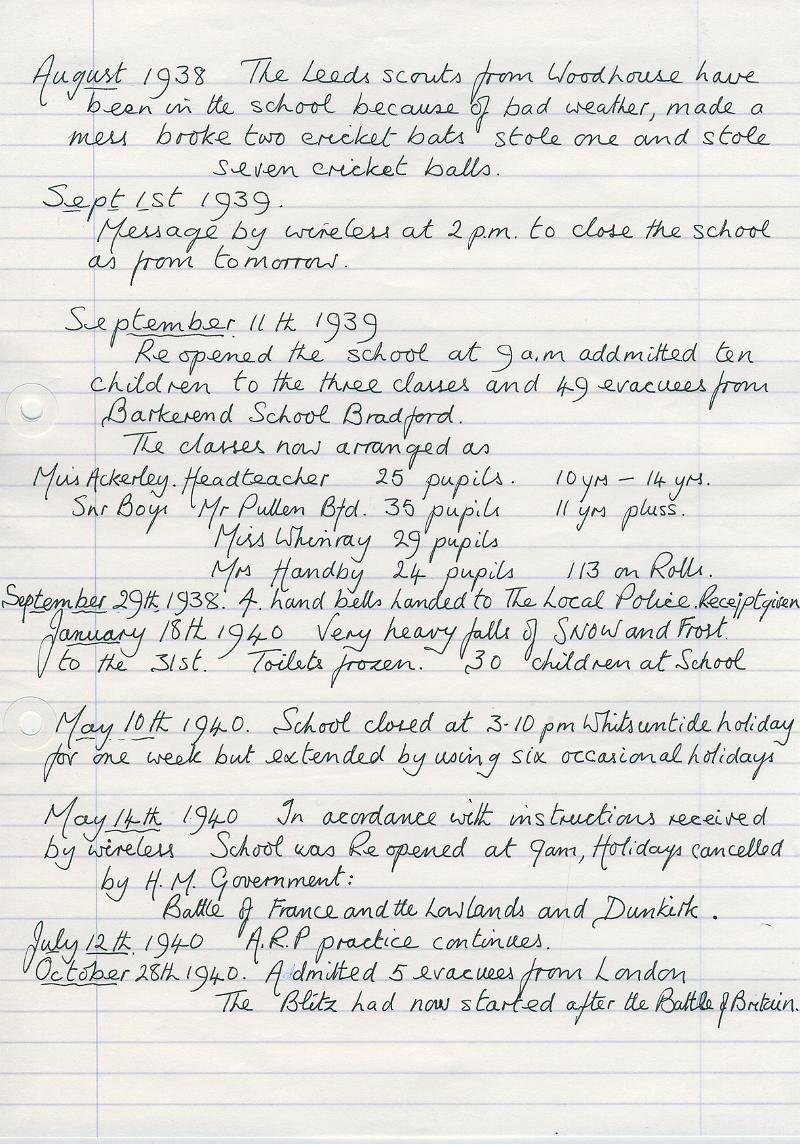 August 1938 The Leeds scouts from Woodhouse have
been in the school because of bad weather, made a
mess broke two cricket bats stole one and stole
seven cricket balls.
Sept 1st 1939.
Message by wireless at 2 p.m. to close the school
as from tomorrow.
September 11th 1939
Re opened the school at 9 a.m addmitted ten
children to the three classes and 49 evacuees from
Barkerend School Bradford.
The classes now arranged as
Miss Ackerley. Headteacher 25 pupils. 10 yrs - 14 yrs.
Snr Boys Mr Pullen Bfd. 35 pupils 11 yrs pluss.
Miss Whinray 29 pupils
Mrs Handby 24 pupils 113 on Rolls.
September 29th 1938. A. hand bells handed to The Local Police. Receipt given
January 18th 1940 Very heavy falls of Snow and Frost.
to the 31st. Toilets frozen. 30 children at School
May 10th 1940. School closed at 3-10 pm Whitsuntide holiday
for one week but extended by using six occasional holidays
May 14th 1940 In acordance with instructions received
by wireless School was Re opened at 9am, Holidays cancelled
by H. M. Government:
Battle of France and the Lowlands and Dunkirk.
July 12th. 1940 A.R.P practice continues.
October 28th 1940. Admitted 5 evacuees from London
The Blitz had now started after the Battle of Britain.